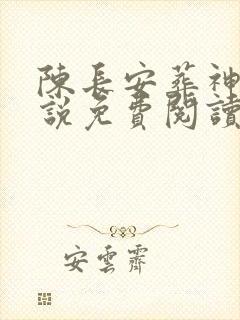 陳長安葬神
說免費閱讀
安雲霽